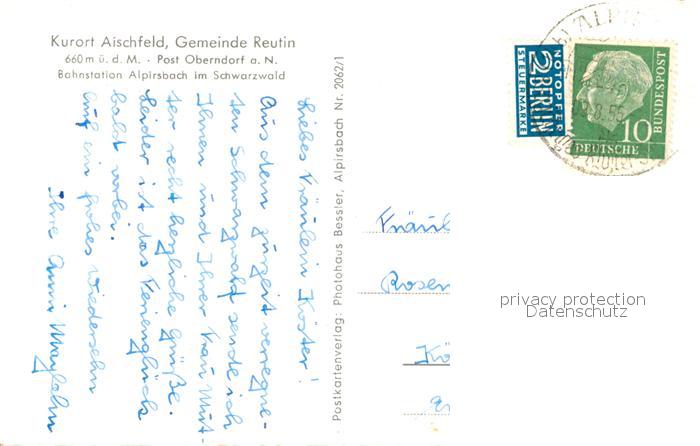 Kurort Aischfeld, Gemeinde Reutin
660 m ü. d. M. · Post Oberndorf a. N.
Bahnstation Alpirsbach im Schwarzwald
Liebes Fräulein Köster!
Aus dem zurzeit verregne-
ten Schwarzwald sende ich
Ihnen und Ihrer Frau Mut-
ter recht herzliche Grüße.
Leider ist das Ferienglück
bald vorbei.
Auf ein frohes Wiedersehn
Ihre
Postkartenverlag: Photohaus Bessler, Alpirsbach Nr. 2062/1
NOTOPFER
2 BERLIN
STEUERMARKE
10
DEUTSCHE
BUNDESPOST
Fräul
Rosen
Kö
privacy protection
Datenschutz